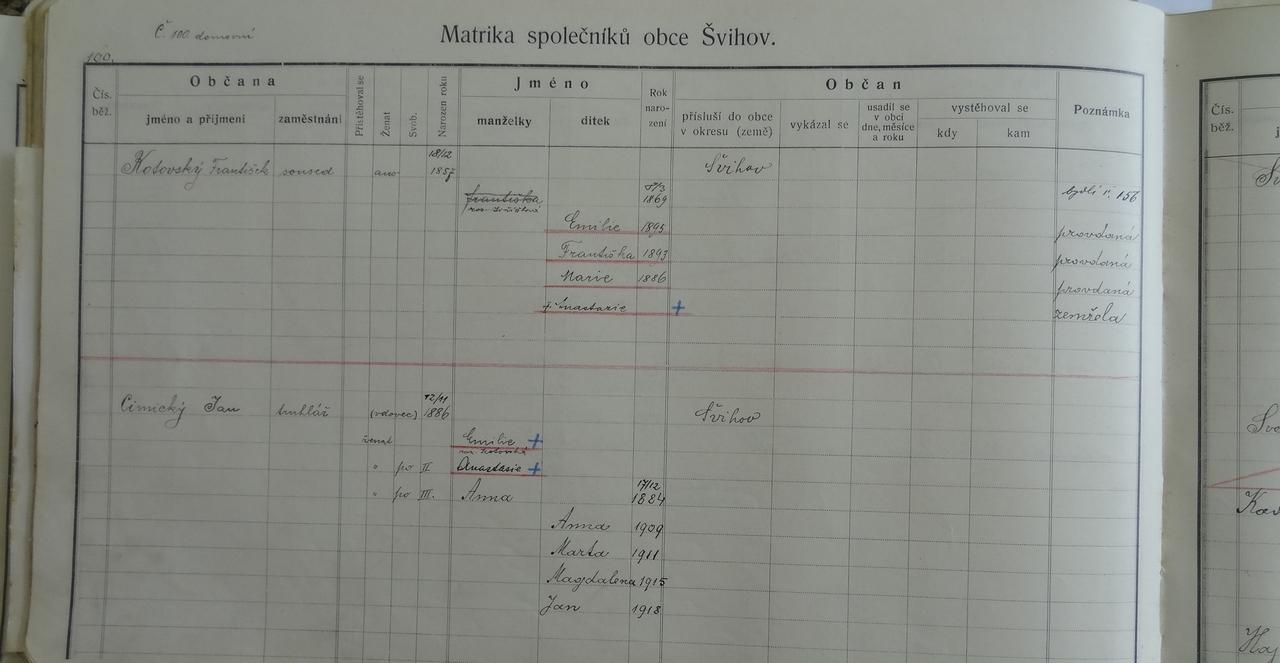 Č 100 domovní
Matrika společníků obce Švihov.
100.
Čís. běž.
Občana
jméno a příjmení
zaměstnání
Přistěhoval se
Ženat
Svob.
Narozen roku
Jméno
manželky
dítek
Rok naro- zení
Občan
přísluší do obce v okresu (země)
vykázal se
usadil se v obci dne, měsíce a roku
vystěhoval se
kdy
kam
Poznámka
Čís. běž.
Kotovský František soused ano 18/12 1857 Švihov
Františka 1869 bydlí č. 156
Emilie 1895 provdaná
Františka 1893 provdaná
Marie 1886 provdaná
† Anastazie + zemřela
Cimický Jan truhlář (vdovec) 12/11 1886 Švihov
ženat Emilie +
roz. Kotovská
" po II Anastasie +
" po III. Anna 17/12 1884
Anna 1909
Marta 1911
Magdalena 1915
Jan 1918